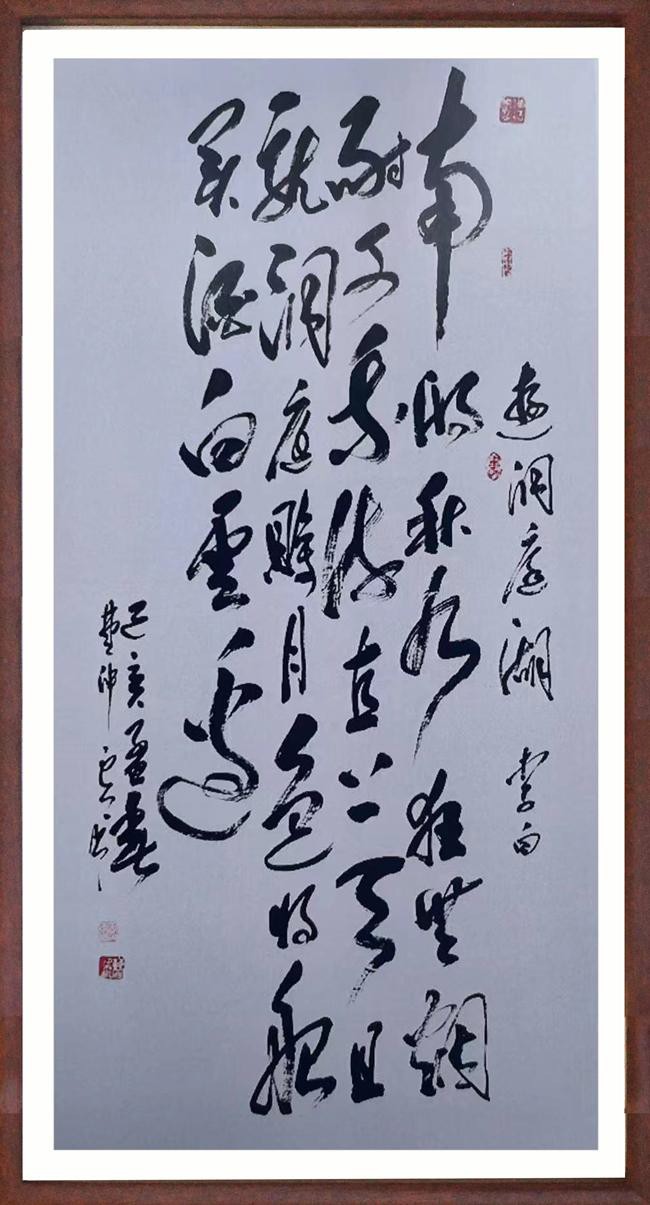 遊洞庭湖 李白
南湖秋水夜無煙
耐可乘流直上天且
就洞庭賒月色將船
買酒白雲邊
己亥孟